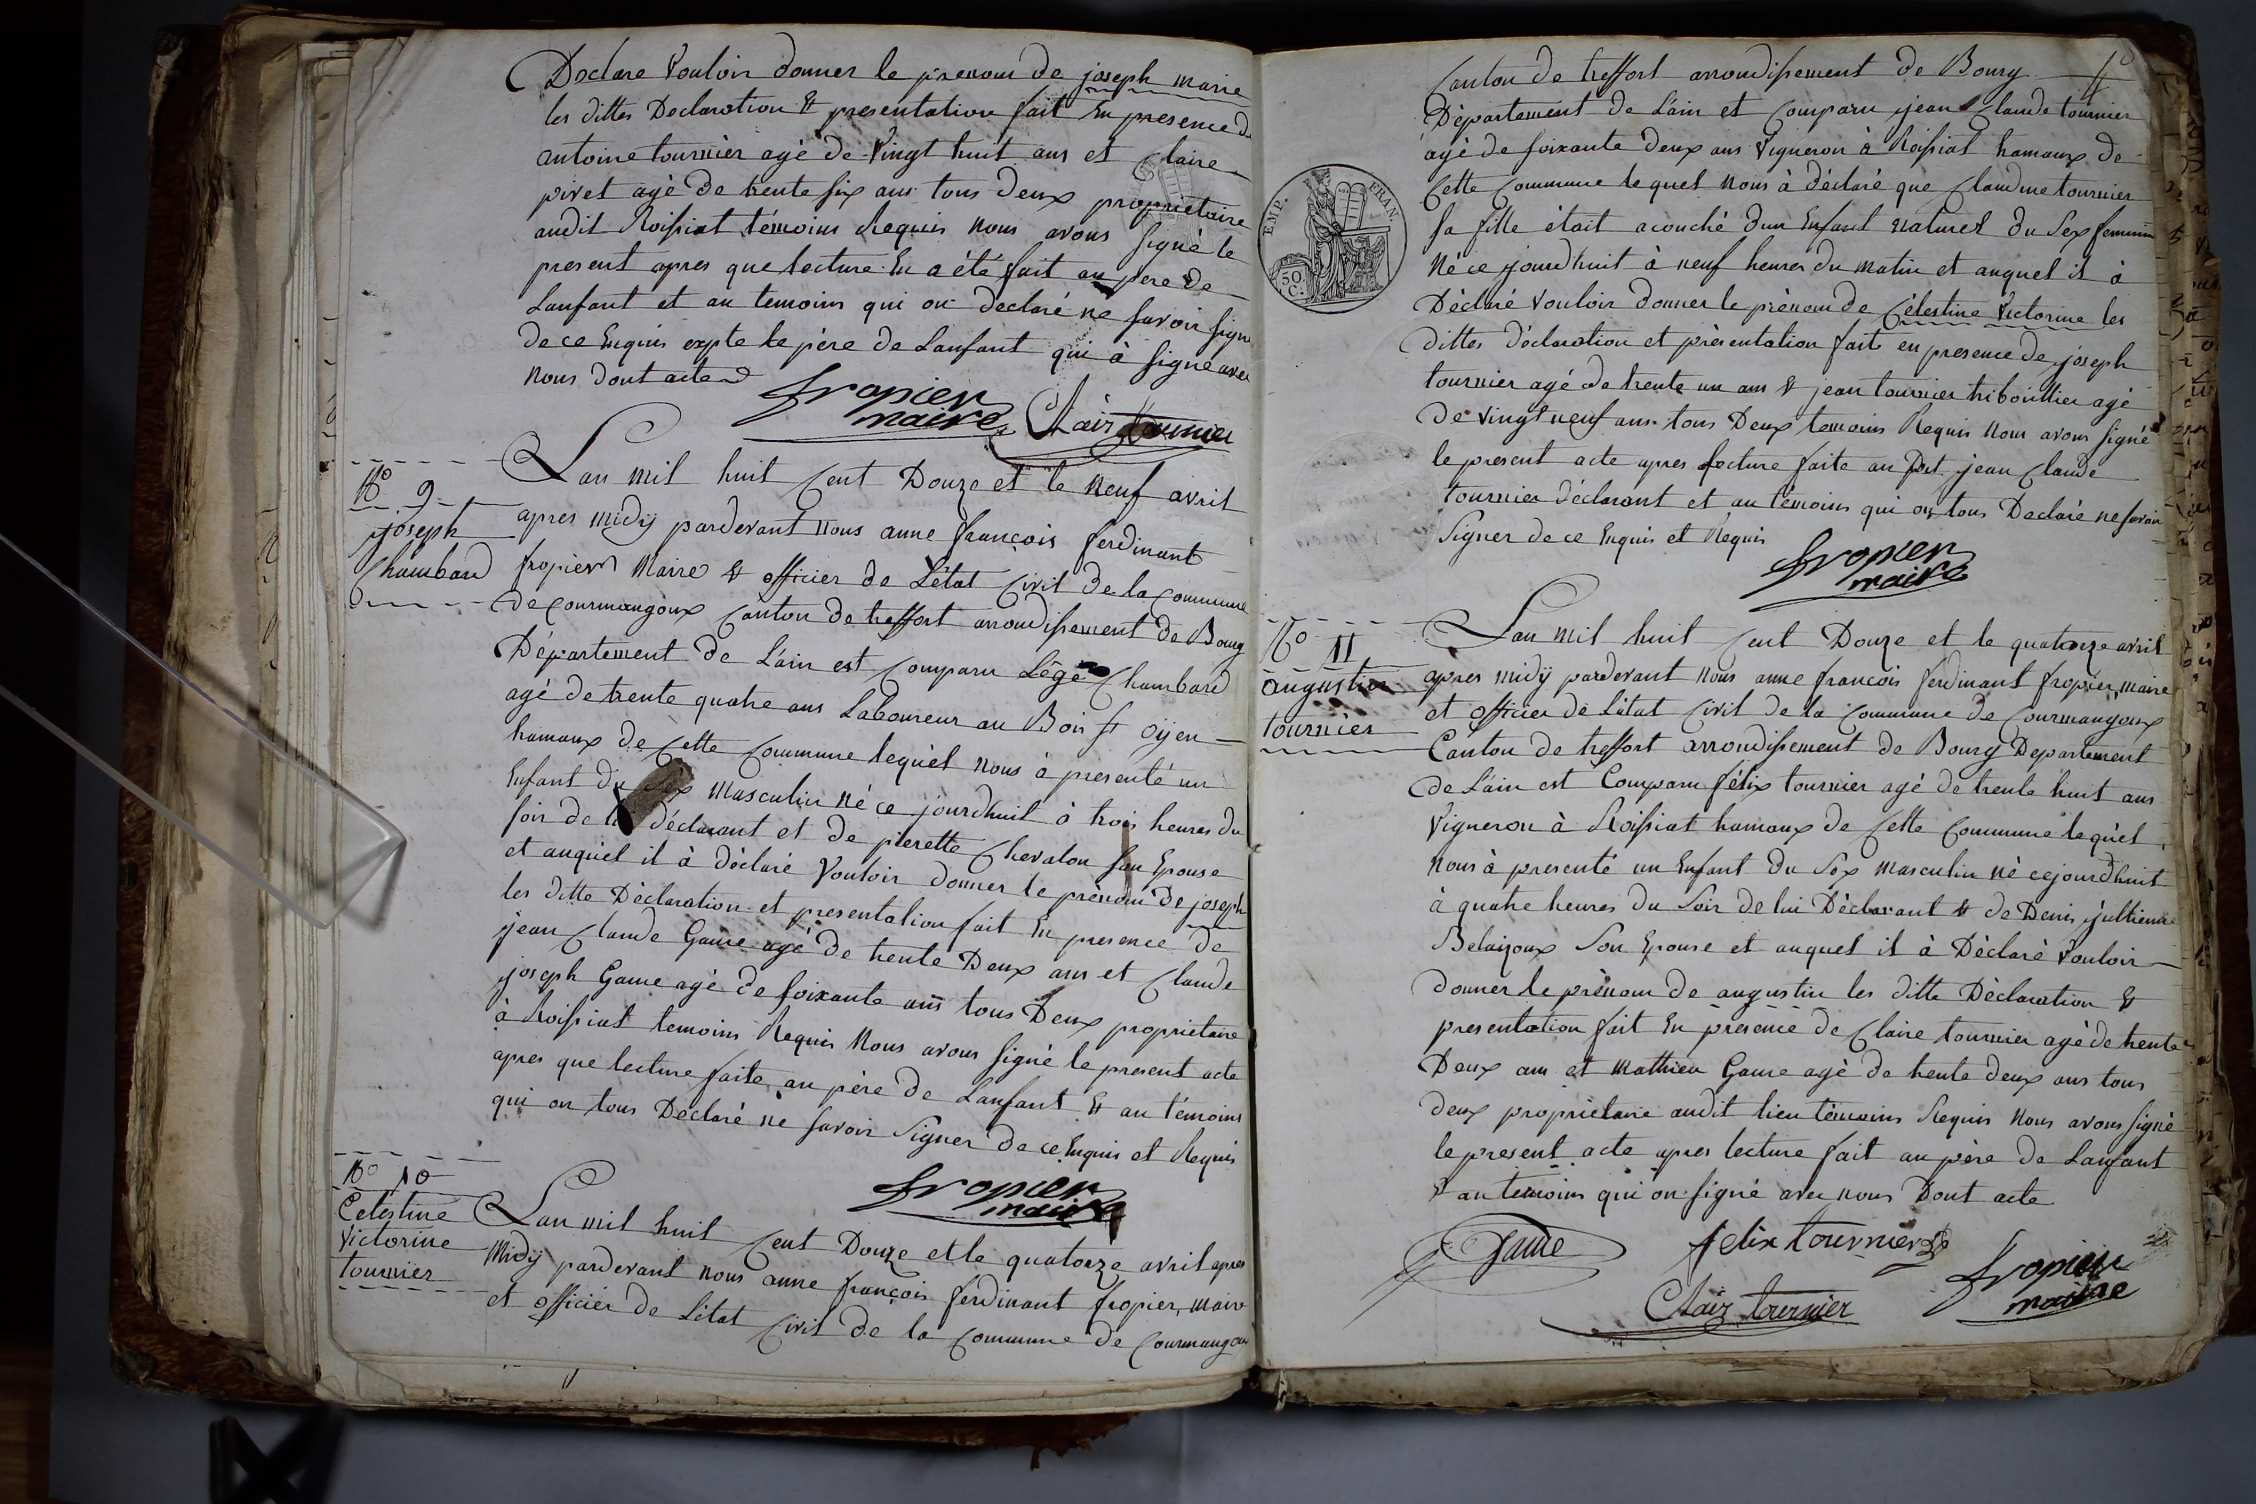 Declare vouloir donner le prenom de joseph marie
les dittes Declaration & presentation fait En presence de
antoine tournier agé de vingt huit ans et Claire
pivet agé de trente six ans tous deux proprietaire
audit Roissiat témoins Requis nous avons signé le
present apres que lecture En a été fait au pere de
Lanfant et au temoins qui on declaré ne savoir signer
de ce Enquis expte le père de Lanfant qui à signé avec
nous dont acte
fropier
maire
Clair tournier
N° 9
joseph
Chambard
Lan mil huit Cent Douze et le neuf avril
apres midÿ pardevant nous anne françois ferdinant
fropier Maire & officier de Létat Civil de la Commune
de Courmangoux Canton de treffort arrondissement de Bourg
Département de Láin est Comparu Légé Chambard
agé de trente quatre ans Laboureur au Bois st oÿen
hamaux de Cette Commune lequèl nous à presenté un
Enfant du sex masculin né ce jourdhuit à trois heures du
soir de lui déclarant et de pierette Chevalon son Epouse
et auquèl il à dèclaré vouloir donner le prènom de joseph
les ditte Dèclaration et presentation fait En presence de
jean Claude Game agé de trente Deux ans et Claude
joseph Game agé de soixante ans tous Deux proprietaire
à Roissiat temoins Requis nous avons signé le present acte
apres que lecture faite au père de Lanfant & au témoins
qui on tous Déclaré ne savoir signer de ce Enquis et Requis
fropier
maire
N° 10
Celestine
Victorine
tournier
Lan mil huit Cent Douze et le quatorze avril apres
Midÿ pardevant nous anne françois ferdinant fropier, maire
et officier de Létat Civil de la Commune de Courmangoux
Canton de treffort arrondissement de Bourg
Département de Láin et Comparu jean Claude tournier
agé de soixante deux ans vigneron à Roissiat hamaux de
Cette Commune lequel nous à déclaré que Claudine tournier
sa fille était acouché dun Enfant naturel du Sex feminin
Né ce jourdhuit à neuf heures du matin et auquel il à
Dèclaré vouloir donner le prènom de Célestine Victorine les
dittes déclaration et présentation faite en presence de joseph
tournier agé de trente un ans & jean tournier tribouillier agé
de vingt neuf ans tous Deux temoins Requis nous avons signé
le present acte apres lecture faite au jean Claude
tournier déclarant et au témoins qui on tous Declaré ne savoir
signer de ce Enquis et Requis
fropier
maire
EMP. FRAN.
50 C.
N° 11
augustin
tournier
Lan mil huit Cent Douze et le quatorze avril
apres midÿ pardevant nous anne francois ferdinant fropier, maire
et officier de Létat Civil de la Commune de Courmangoux
Canton de treffort arrondissement de Bourg Departement
de Láin est Comparu félix tournier agé de trente huit ans
vigneron à Roissiat hamaux de Cette Commune lequèl
nous à presenté un Enfant du Sex masculin nè cejourdhuit
à quatre heures du Soir de lui Dèclarant & de Denis jullienne
Belaisoux Son Epouse et auquel il à Dèclaré vouloir
donner le prènom de augustin les ditte Dèclaration &
presentation fait En présence de Claire tournier agé de trente
Deux ans et mathieu Game agé de trente deux ans tous
deux proprietaire audit lieu témoins Requis nous avons signé
le present acte apres lecture fait au père de Lanfant
& au temoins qui on signé avec nous Dont acte
Game
felix tournier
fropier
maire
Clair tournier